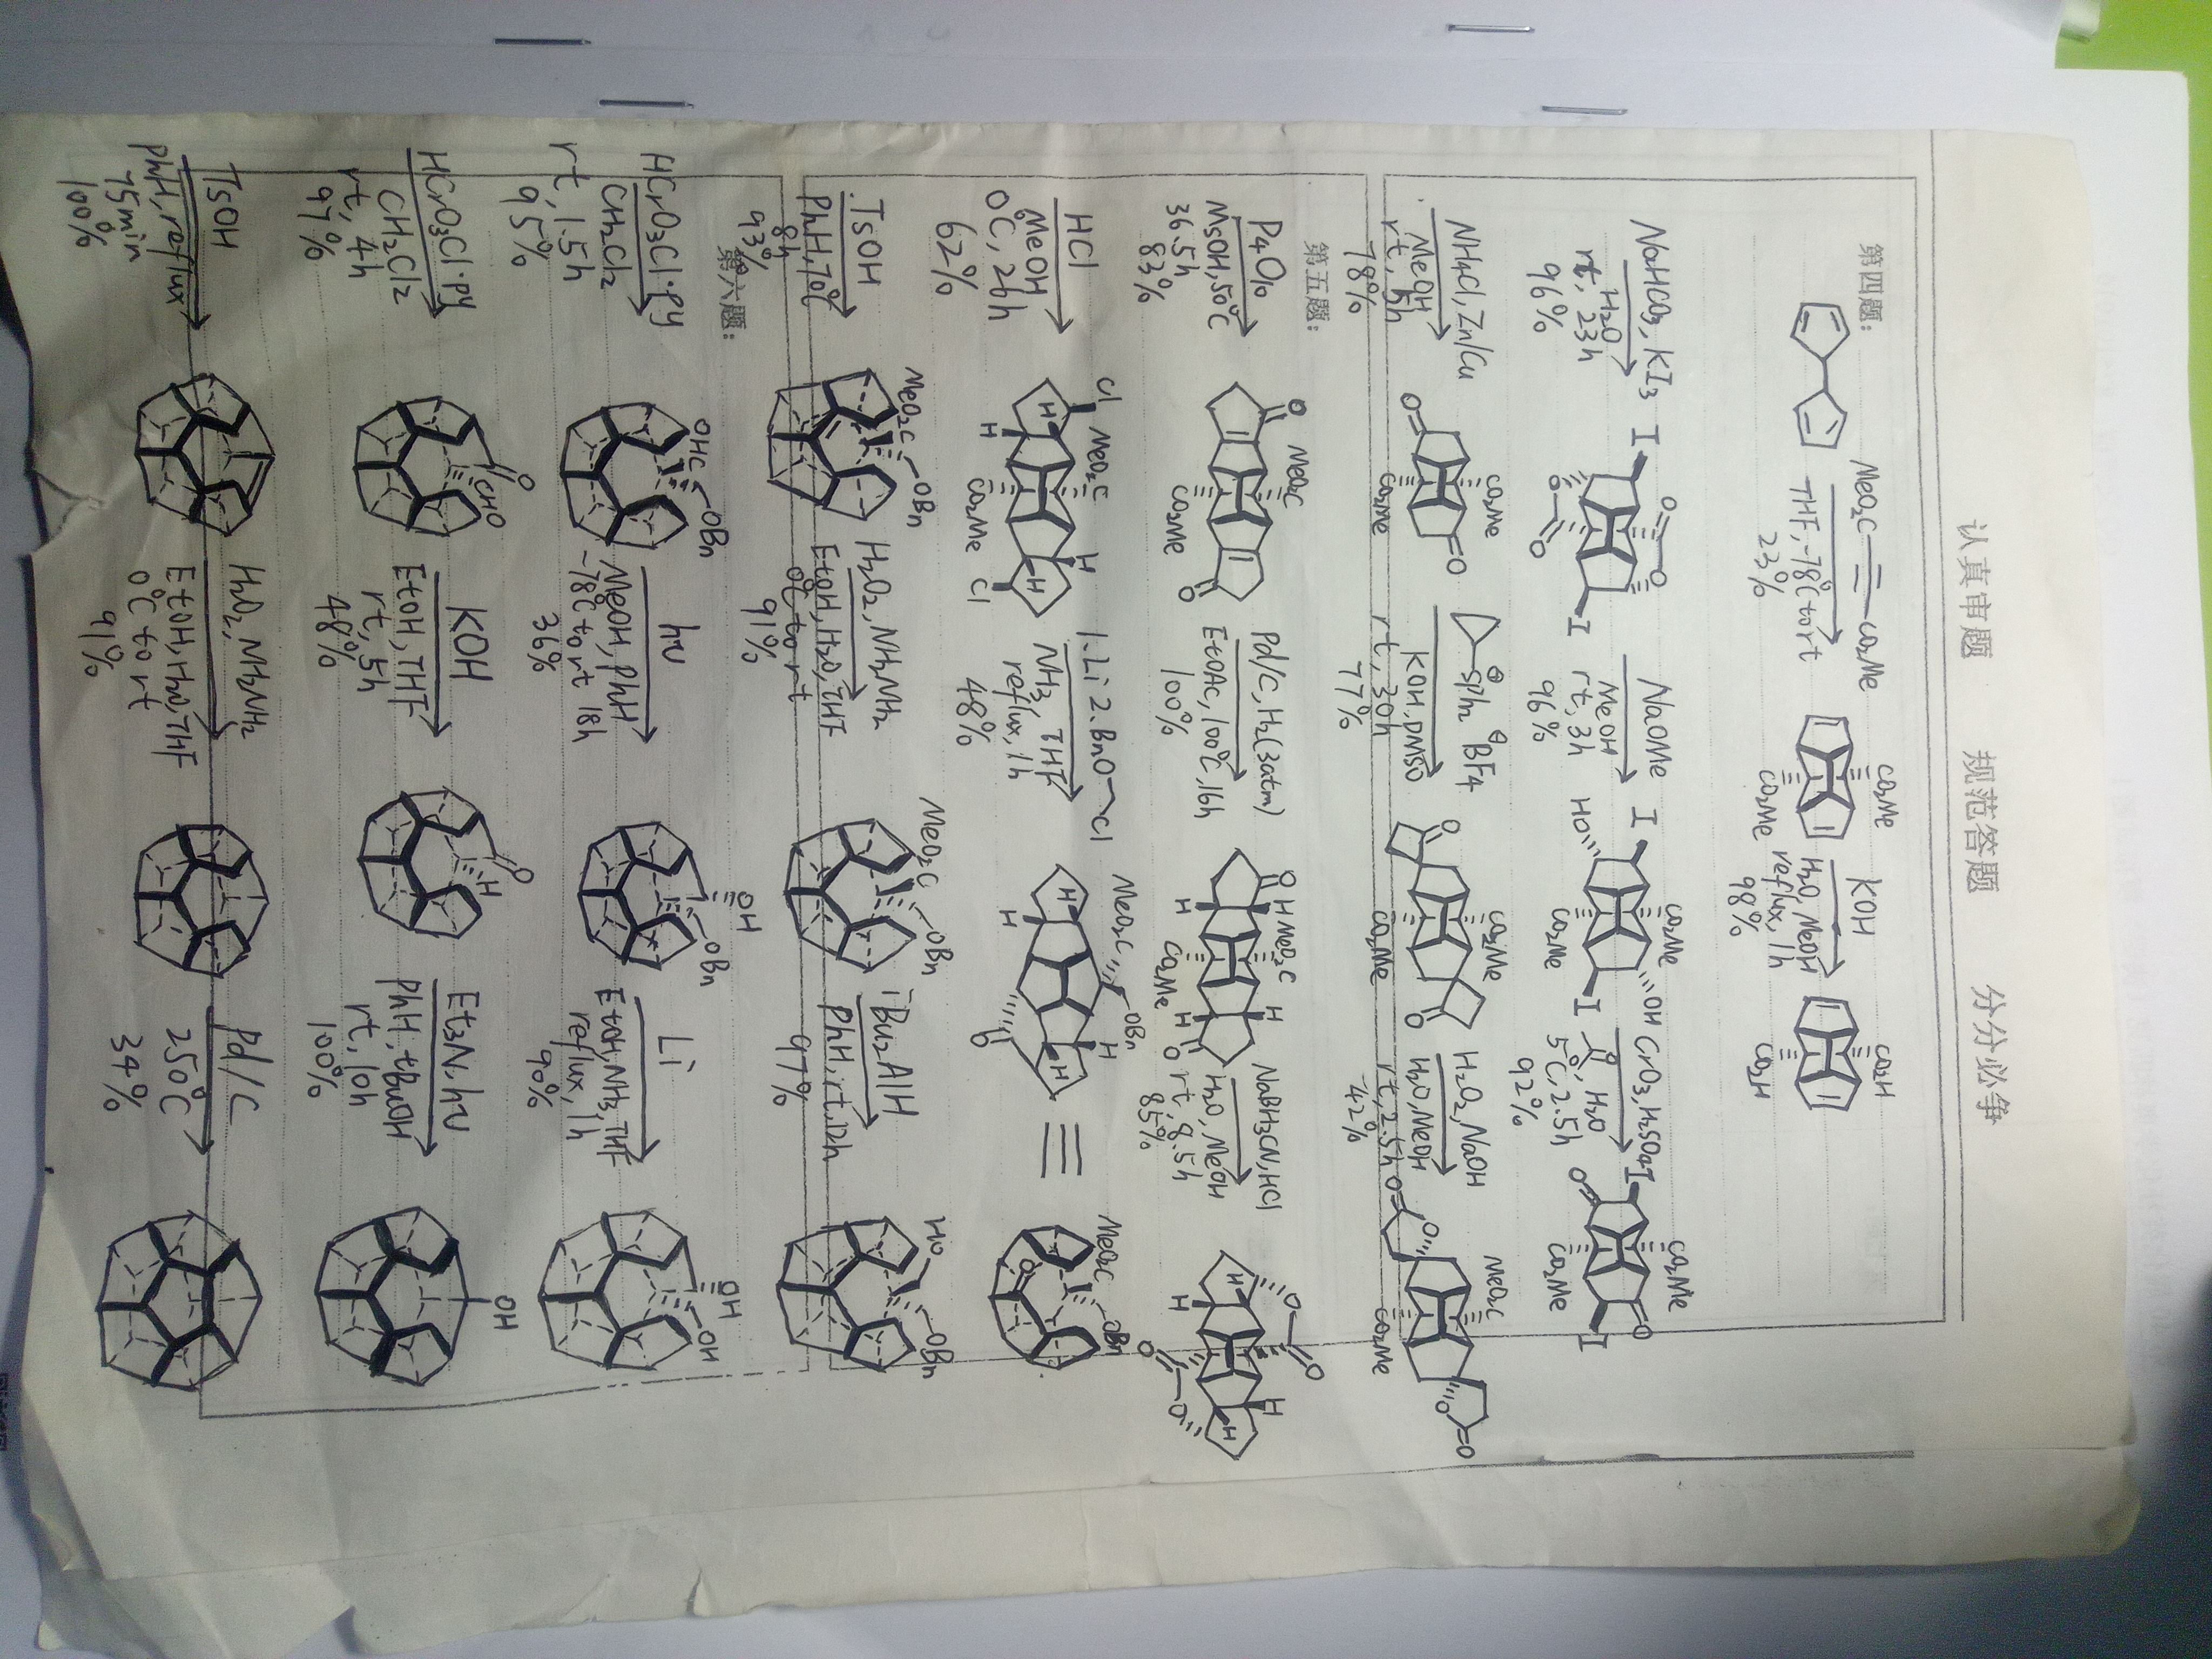 认真审题 规范答题 分分必争
第四题:
MeO₂C CO₂Me
THF, -78℃ to rt
23%
CO₂Me
CO₂Me
KOH
H₂O, MeOH
reflux, 1h
98%
CO₂H
CO₂H
NaHCO₃, KI₃
H₂O
rt, 23h
96%
I O O O O I
NaOMe
MeOH
rt, 3h
96%
I CO₂Me OH
HO CO₂Me I
CrO₃, H₂SO₄
O, H₂O
5℃, 2.5h
92%
I CO₂Me O
O CO₂Me I
NH₄Cl, Zn/Cu
MeOH
rt, 5h
78%
CO₂Me O
O CO₂Me
⊕SPh₂ ⊖BF₄
KOH, DMSO
rt, 30h
77%
O CO₂Me
CO₂Me O
H₂O₂, NaOH
H₂O, MeOH
rt, 2.5h
42%
O O MeO₂C
CO₂Me O O
第五题:
P₄O₁₀
MsOH, 50℃
36.5h
83%
O MeO₂C
CO₂Me O
Pd/C, H₂(3atm)
EtOAc, 100℃, 16h
100%
O H MeO₂C H
H CO₂Me H O
NaBH₃CN, HCl
H₂O, MeOH
rt, 8.5h
85%
H O O
H H
O O H
HCl
MeOH
0℃, 26h
62%
Cl MeO₂C H
H H
H CO₂Me Cl
1. Li 2. BnO Cl
NH₃, THF
reflux, 1h
48%
MeO₂C OBn H
H H
H O
≡
MeO₂C OBn
O
TsOH
PhH, 70℃
8h
93%
MeO₂C OBn
H₂O₂, NH₂NH₂
EtOH, H₂O, THF
0℃ to rt
91%
MeO₂C OBn
ⁱBu₂AlH
PhH, rt, 12h
97%
HO OBn
第六题:
HCrO₃Cl·Py
CH₂Cl₂
rt, 1.5h
95%
OHC OBn
hν
MeOH, PhH
-78℃ to rt 18h
36%
OH OBn
Li
EtOH, NH₃, THF
reflux, 1h
90%
OH OH
HCrO₃Cl·Py
CH₂Cl₂
rt, 4h
97%
O CHO
KOH
EtOH, THF
rt, 5h
48%
O H
Et₃N, hν
PhH, tBuOH
rt, 10h
100%
OH
TsOH
PhH, reflux
75min
100%
H₂O₂, NH₂NH₂
EtOH, H₂O, THF
0℃ to rt
91%
Pd/C
250℃
34%